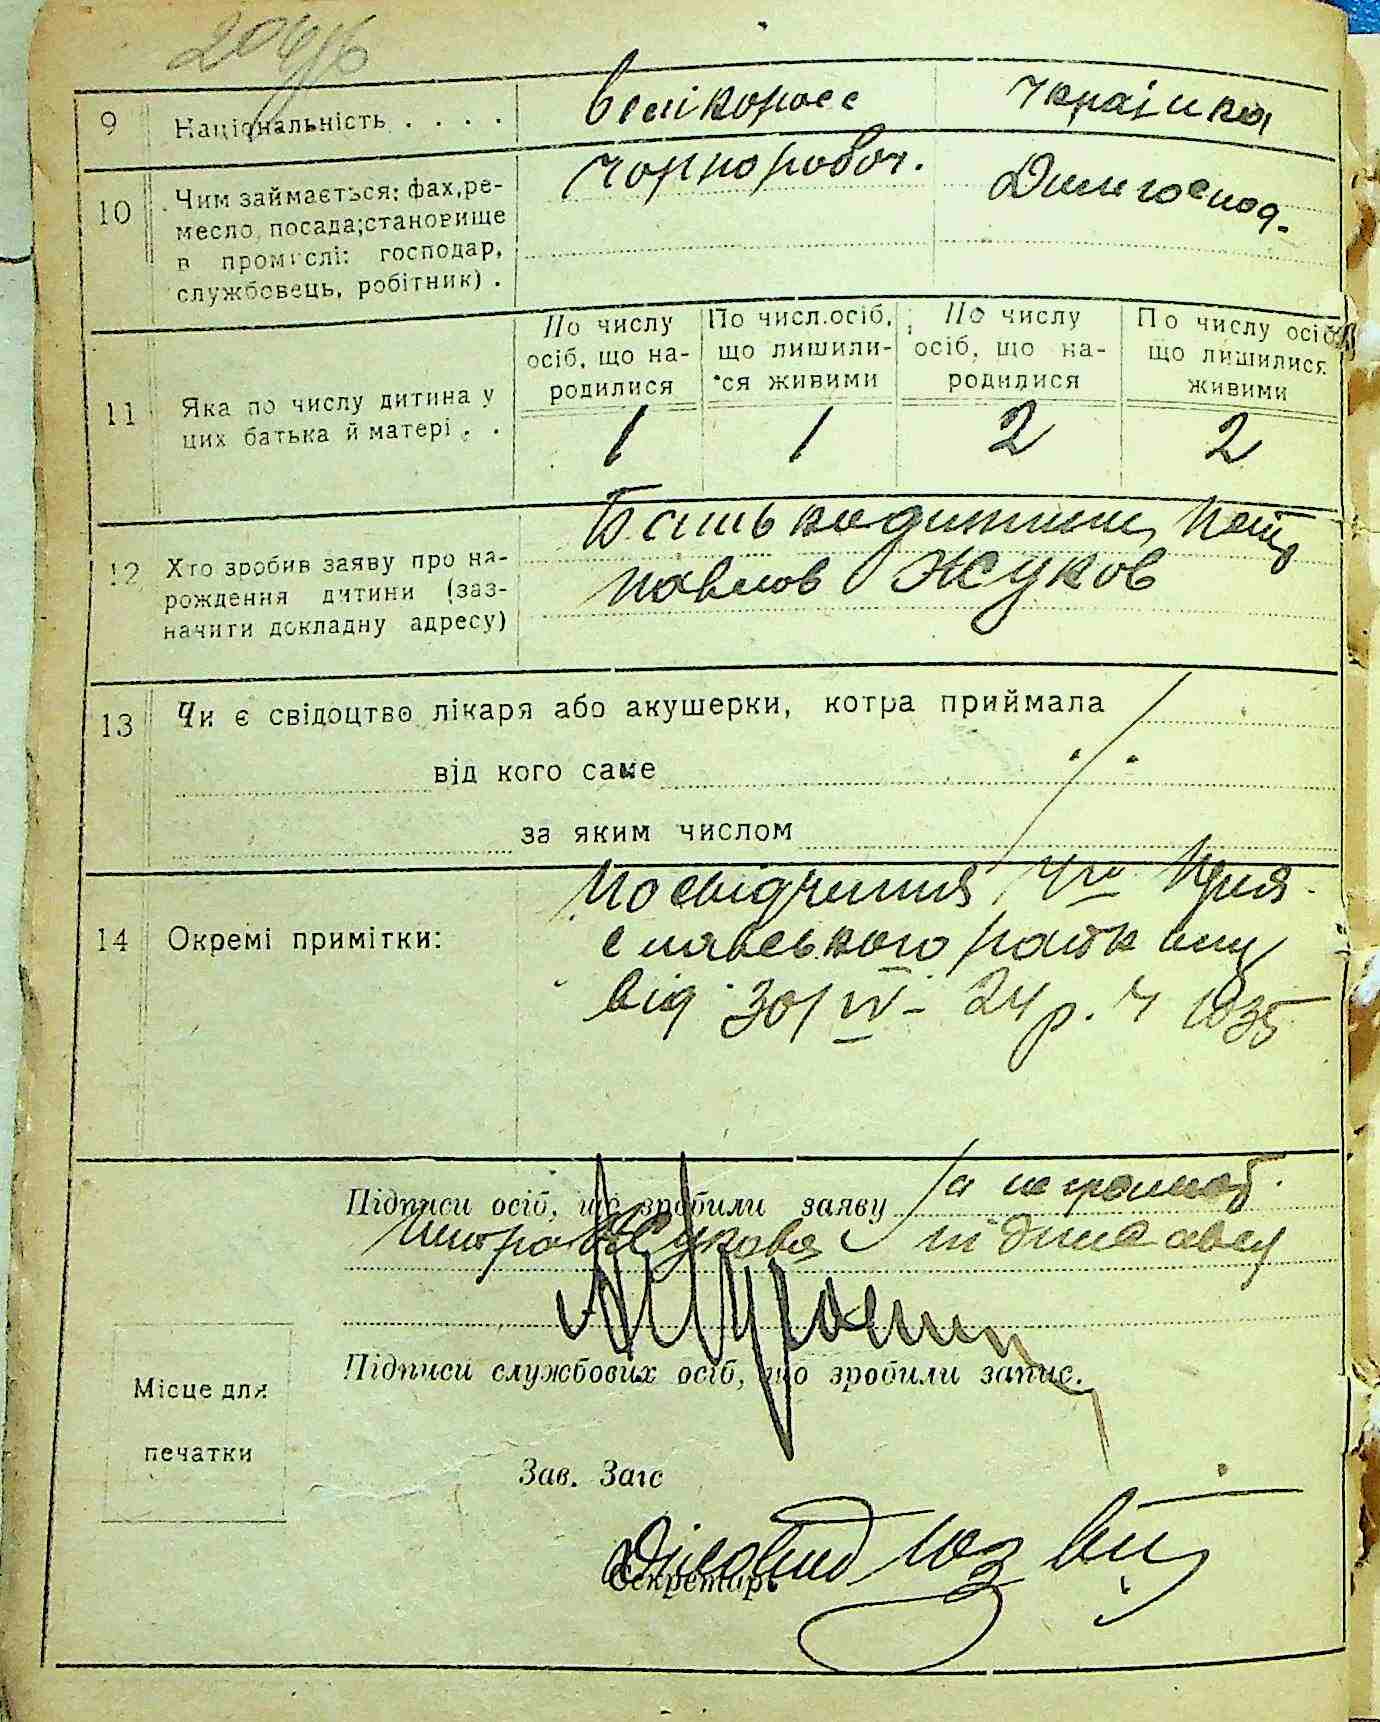 204/6
9 Національність . . . . великоросс Українка
10 Чим займається: фах, ре-
месло, посада; становище
в промислі: господар,
службовець, робітник) .
Чорноробоч. Дом господ.
11 Яка по числу дитина у
цих батька й матері . .
По числу осіб, що на-родилися
По числ.осіб, що лишили-ся живими
По числу осіб, що на-родилися
По числу осіб що лишилися живими
1 1 2 2
12 Хто зробив заяву про на-
рождення дитини (заз-
начити докладну адресу)
Батько дитини Петр
Павлов Жуков
13 Чи є свідоцтво лікаря або акушерки, котра приймала
від кого саме
за яким числом
14 Окремі примітки:
Посвідчення
райвику
від 30/IV - 24 р. Ч 1035
Підписи осіб, що зробили заяву За неграмот.
Петра Жукова підписався
Підписи службових осіб, що зробили запис.
Місце для
печатки
Зав. Загс
Секретарь